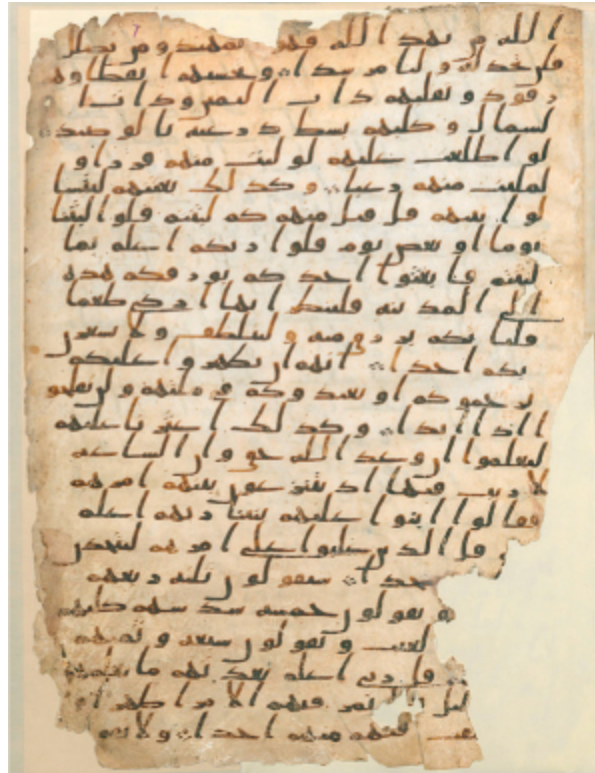 الله من يهد الله فهو المهتد ومن يضلل
فلن تجد له وليا مرشدا وتحسبهم ايقظا وهم
رقود ونقلبهم ذات اليمين وذات ا
لشمال وكلبهم بسط ذرعيه بالوصيد
لو اطلعت عليهم لوليت منهم فررا و
لملئت منهم رعبا وكذلك بعثنهم ليتسا
لوا بينهم قل قئل منهم كم لبثتم قلوا لبثنا
يوما او بعض يوم قلوا ربكم اعلم بما
لبثتم فابعثوا احدكم بورقكم هذه
الى المدينة فلينظر ايها ازكى طعما
فلياتكم برزق منه وليتلطف ولا يشعرن
بكم احدا انهم ان يظهروا عليكم
يرجموكم او يعيدوكم في ملتهم ولن تفلحو
ا اذا ابدا وكذلك اعثرنا عليهم
ليعلموا ان وعد الله حق وان الساعة
لا ريب فيها اذ يتنزعون بينهم امرهم
فقالوا ابنوا عليهم بنينا ربهم اعلم
قل الذين غلبوا على امرهم لنتخذن
جدا سيقولون ثلثة ربعهم
يقولون خمسة سدسهم كلبهم
لغيب ويقولون سبعة وثمنهم
قل ربي اعلم بعدتهم ما يعلمهم
ليل تمر فيهم الا مرا ظهرا
فيهم منهم احدا ولا تقو